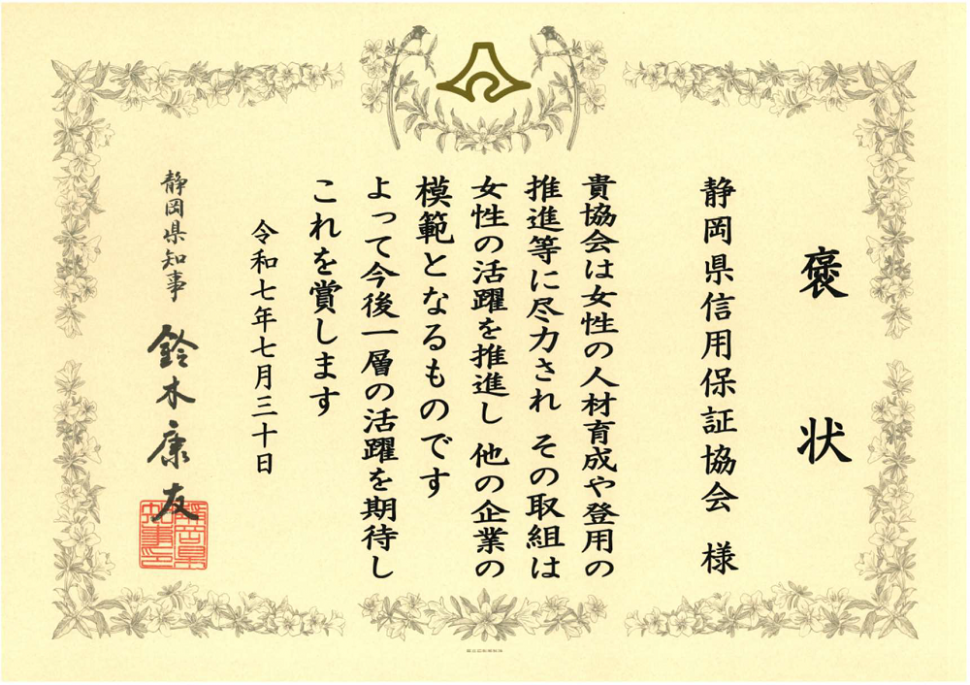 褒状
静岡県信用保証協会 様
貴協会は女性の人材育成や登用の
推進等に尽力され その取組は
女性の活躍を推進し 他の企業の
模範となるものです
よって今後一層の活躍を期待し
これを賞します
令和七年七月三十日
静岡県知事 鈴木康友